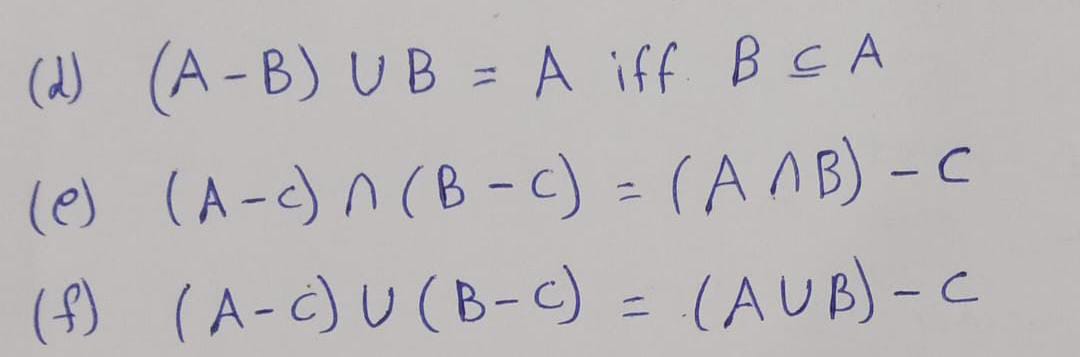 (d) (A-B) ∪ B = A iff. B ⊆ A
(e) (A-C) ∩ (B-C) = (A∩B) - C
(f) (A-C) ∪ (B-C) = (A∪B) - C